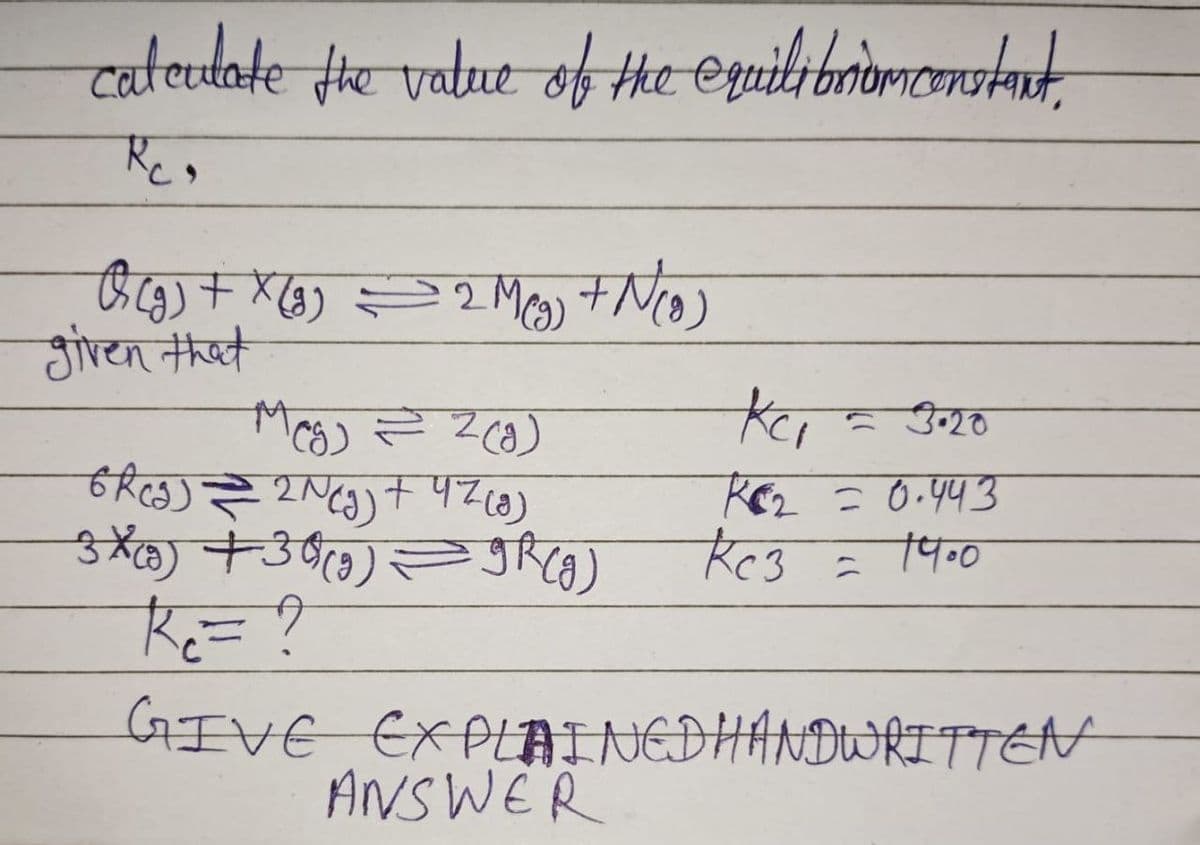 calculate the value of the equilibriumconstant,
Kc,
Q(g) + X(g) ⇌ 2 M(g) + N(g)
given that
M(g) ⇌ Z(g) Kc1 = 3.20
6R(g) ⇌ 2N(g) + 4Z(g) Kc2 = 0.443
3X(g) + 3Q(g) ⇌ 9R(g) Kc3 = 14.0
Kc = ?
GIVE EXPLAINEDHANDWRITTEN
ANSWER